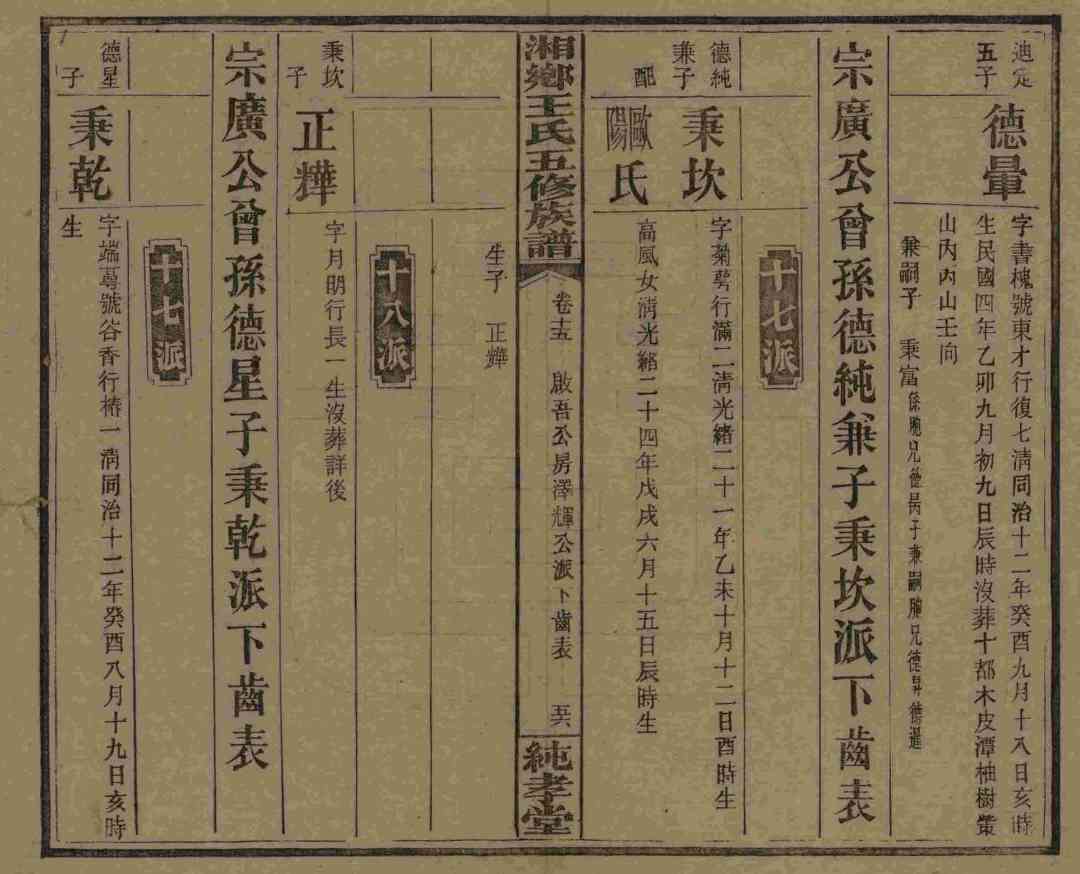 迪定
五子
德暈
字書槐號東才行復七淸同治十二年癸酉九月十八日亥時
生民國四年乙卯九月初九日辰時沒葬十都木皮潭柚樹
山內丙山壬向
兼嗣子 秉富係胞兄德昺子兼嗣胞兄德昇德暹
宗廣公曾孫德純兼子秉坎派下齒表
十七派
德純
兼子
秉坎
字菊 行滿二淸光緒二十一年乙未十月十二日酉時生
配
歐陽氏
高風女淸光緒二十四年戊戌六月十五日辰時生
湘鄉王氏五修族譜
卷十五 啟吾公房澤輝公派下齒表
純孝堂
生子 正燁
十八派
秉坎
子
正燁
字月明行長一 生沒葬詳後
宗廣公曾孫德星子秉乾派下齒表
十七派
德星
子
秉乾
字端 號谷香行椿一淸同治十二年癸酉八月十九日亥時
生